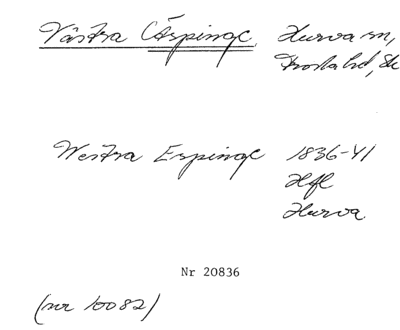 Västra Espinge, Hurva sn,
Frosta hd, Sk
Westra Espinge 1836-41
Hfl
Hurva
Nr 20836
(nr 10082)